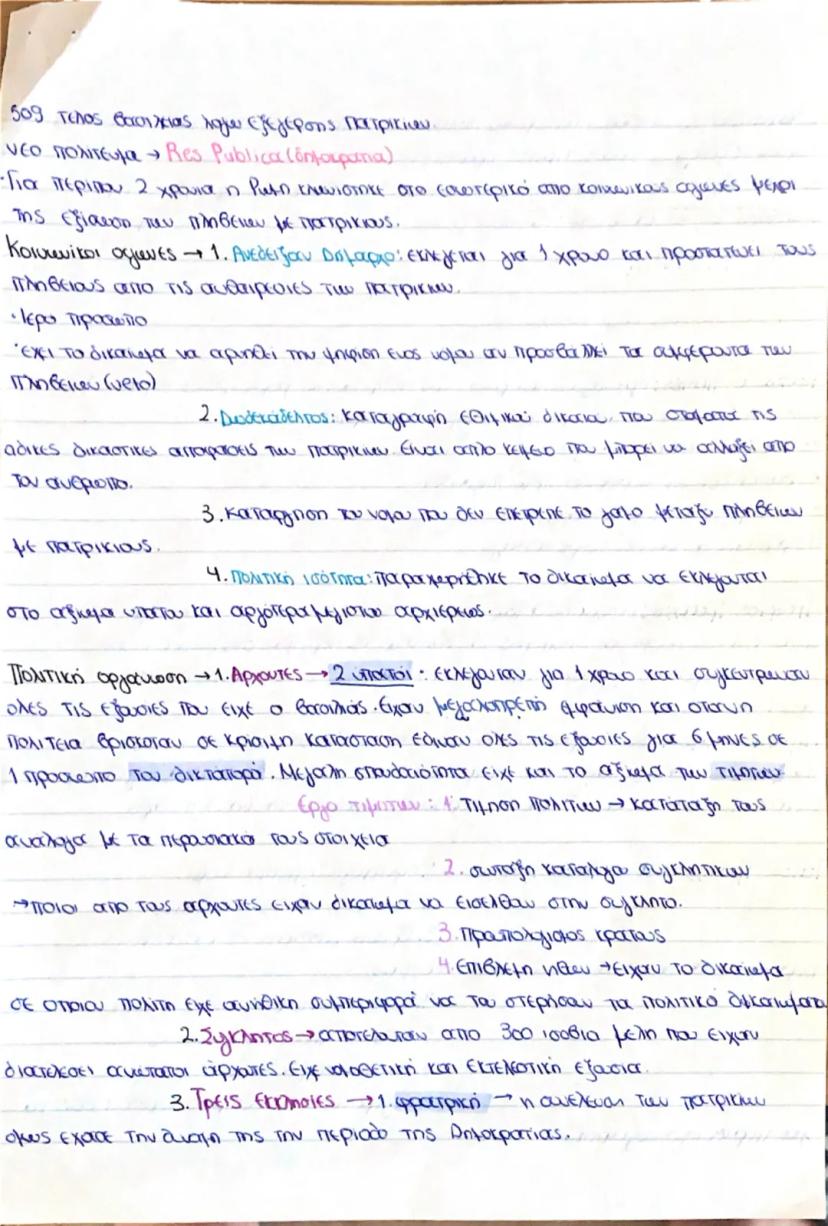 509 τελος βασιλειας λογω εξεγερσης πατρικιων.
νεο πολιτευμα → Res Publica (δημοκρατια)
·Για περιπου 2 χρονια η Ρωμη κλεινιστηκε στο εσωτερικό απο κοινωνικους αγωνες μεχρι
της εξισωση των πληβειων με πατρικιους.
Κοινωνικοι αγωνες → 1. Ανεδειξαν Δημαρχο: εκλεγεται για 1 χρονο και προστατευει τους
πληβειους απο τις αυθαιρεσιες των πατρικιων.
·Ιερο προσωπο
·εχει το δικαιωμα να αρνηθει την ψηφιση ενος νομου αν προσβαλλει τα συμφεροντα των
πληβειων (veto)
2. Δωδεκαδελτος: καταγραφή εθιμικού δικαιου που σταματα τις
αδικες δικαστικες αποφασεις των πατρικιων. Ειναι απλο κειμενο που μπορει να αλλαξει απο
τον ανθρωπο.
3. καταργηση του νομου που δεν επετρεπε το γαμο μεταξυ πληβειων
με πατρικιους.
4. Πολιτική ισότητα: παραχωρηθηκε το δικαιωμα να εκλεγονται
στο αξιωμα υπατου και αργότερα μεγιστου αρχιερεως.
Πολιτική οργάνωση → 1. Αρχοντες → 2 υπατοι: εκλεγονταν για 1 χρονο και συγκεντρωναν
ολες τις εξουσιες που ειχε ο βασιλιάς. Ειχαν μεγαλοπρεπή εμφανιση και οταν η
πολιτεια βρισκοταν σε κρισιμη κατασταση εδιναν ολες τις εξουσιες για 6 μηνες σε
1 προσωπο τον δικτατορα. Μεγαλη σπουδαιότητα ειχε και το αξιωμα των τιμητων
Εργο τιμητων: 1. Τιμηση πολιτων → καταταξη τους
αναλογα με τα περουσιακα τους στοιχεια
2. συνταξη καταλογου συγκλητικων
→ποιοι απο τους αρχοντες ειχαν δικαιωμα να εισελθουν στην συγκλητο.
3. Προυπολογισμος κρατους
4. Επιβλεψη ηθων → ειχαν το δικαιωμα
σε οποιον πολιτη ειχε ανηθικη συμπεριφορά να του στερησουν τα πολιτικα δικαιωματα
2. Σύγκλητος → αποτελουταν απο 300 ισοβια μελη που ειχαν
διατελεσει ανωτατοι άρχοντες. Ειχε νομοθετική και εκτελεστική εξουσια.
3. Τρεις Εκκλησιες → 1. φρατρική → η συνελευση των πατρικιων
ομως εχασε την δυναμη της την περιοδο της Δημοκρατιας.